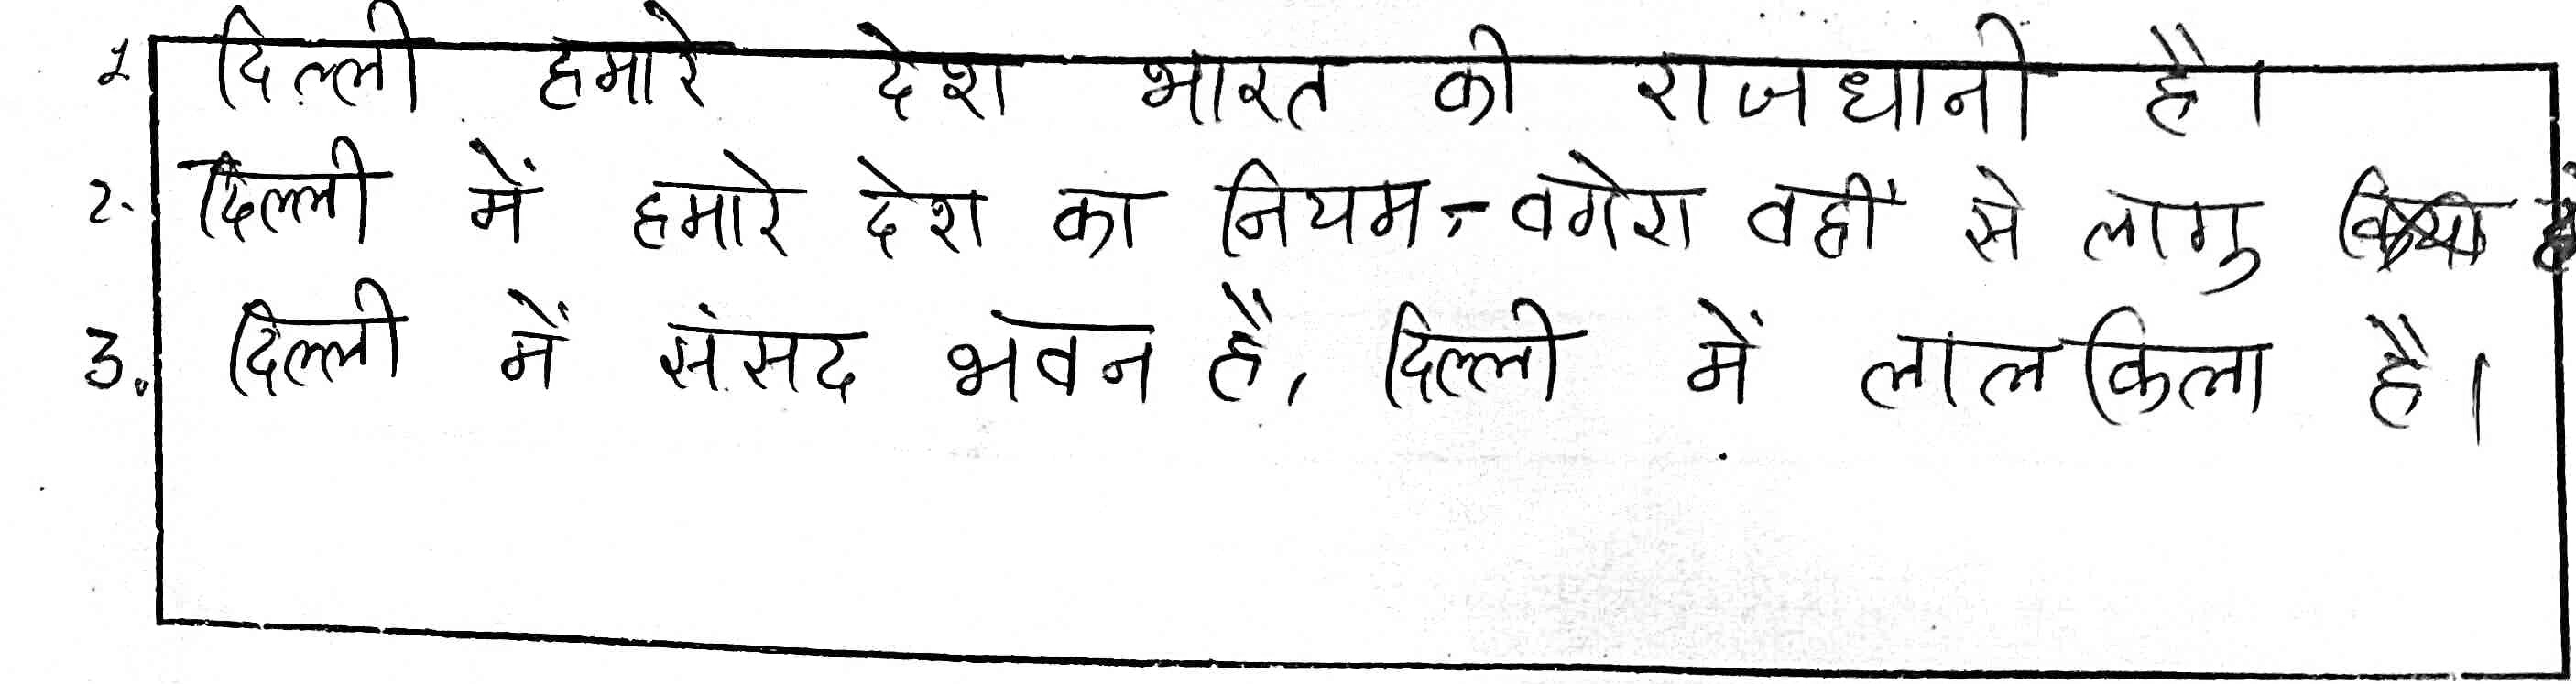 1. दिल्ली हमारे देश भारत की राजधानी है।
2. दिल्ली में हमारे देश का नियम - वगेरा वहीं से लागु
3. दिल्ली में संसद भवन है, दिल्ली में लाल किला है।